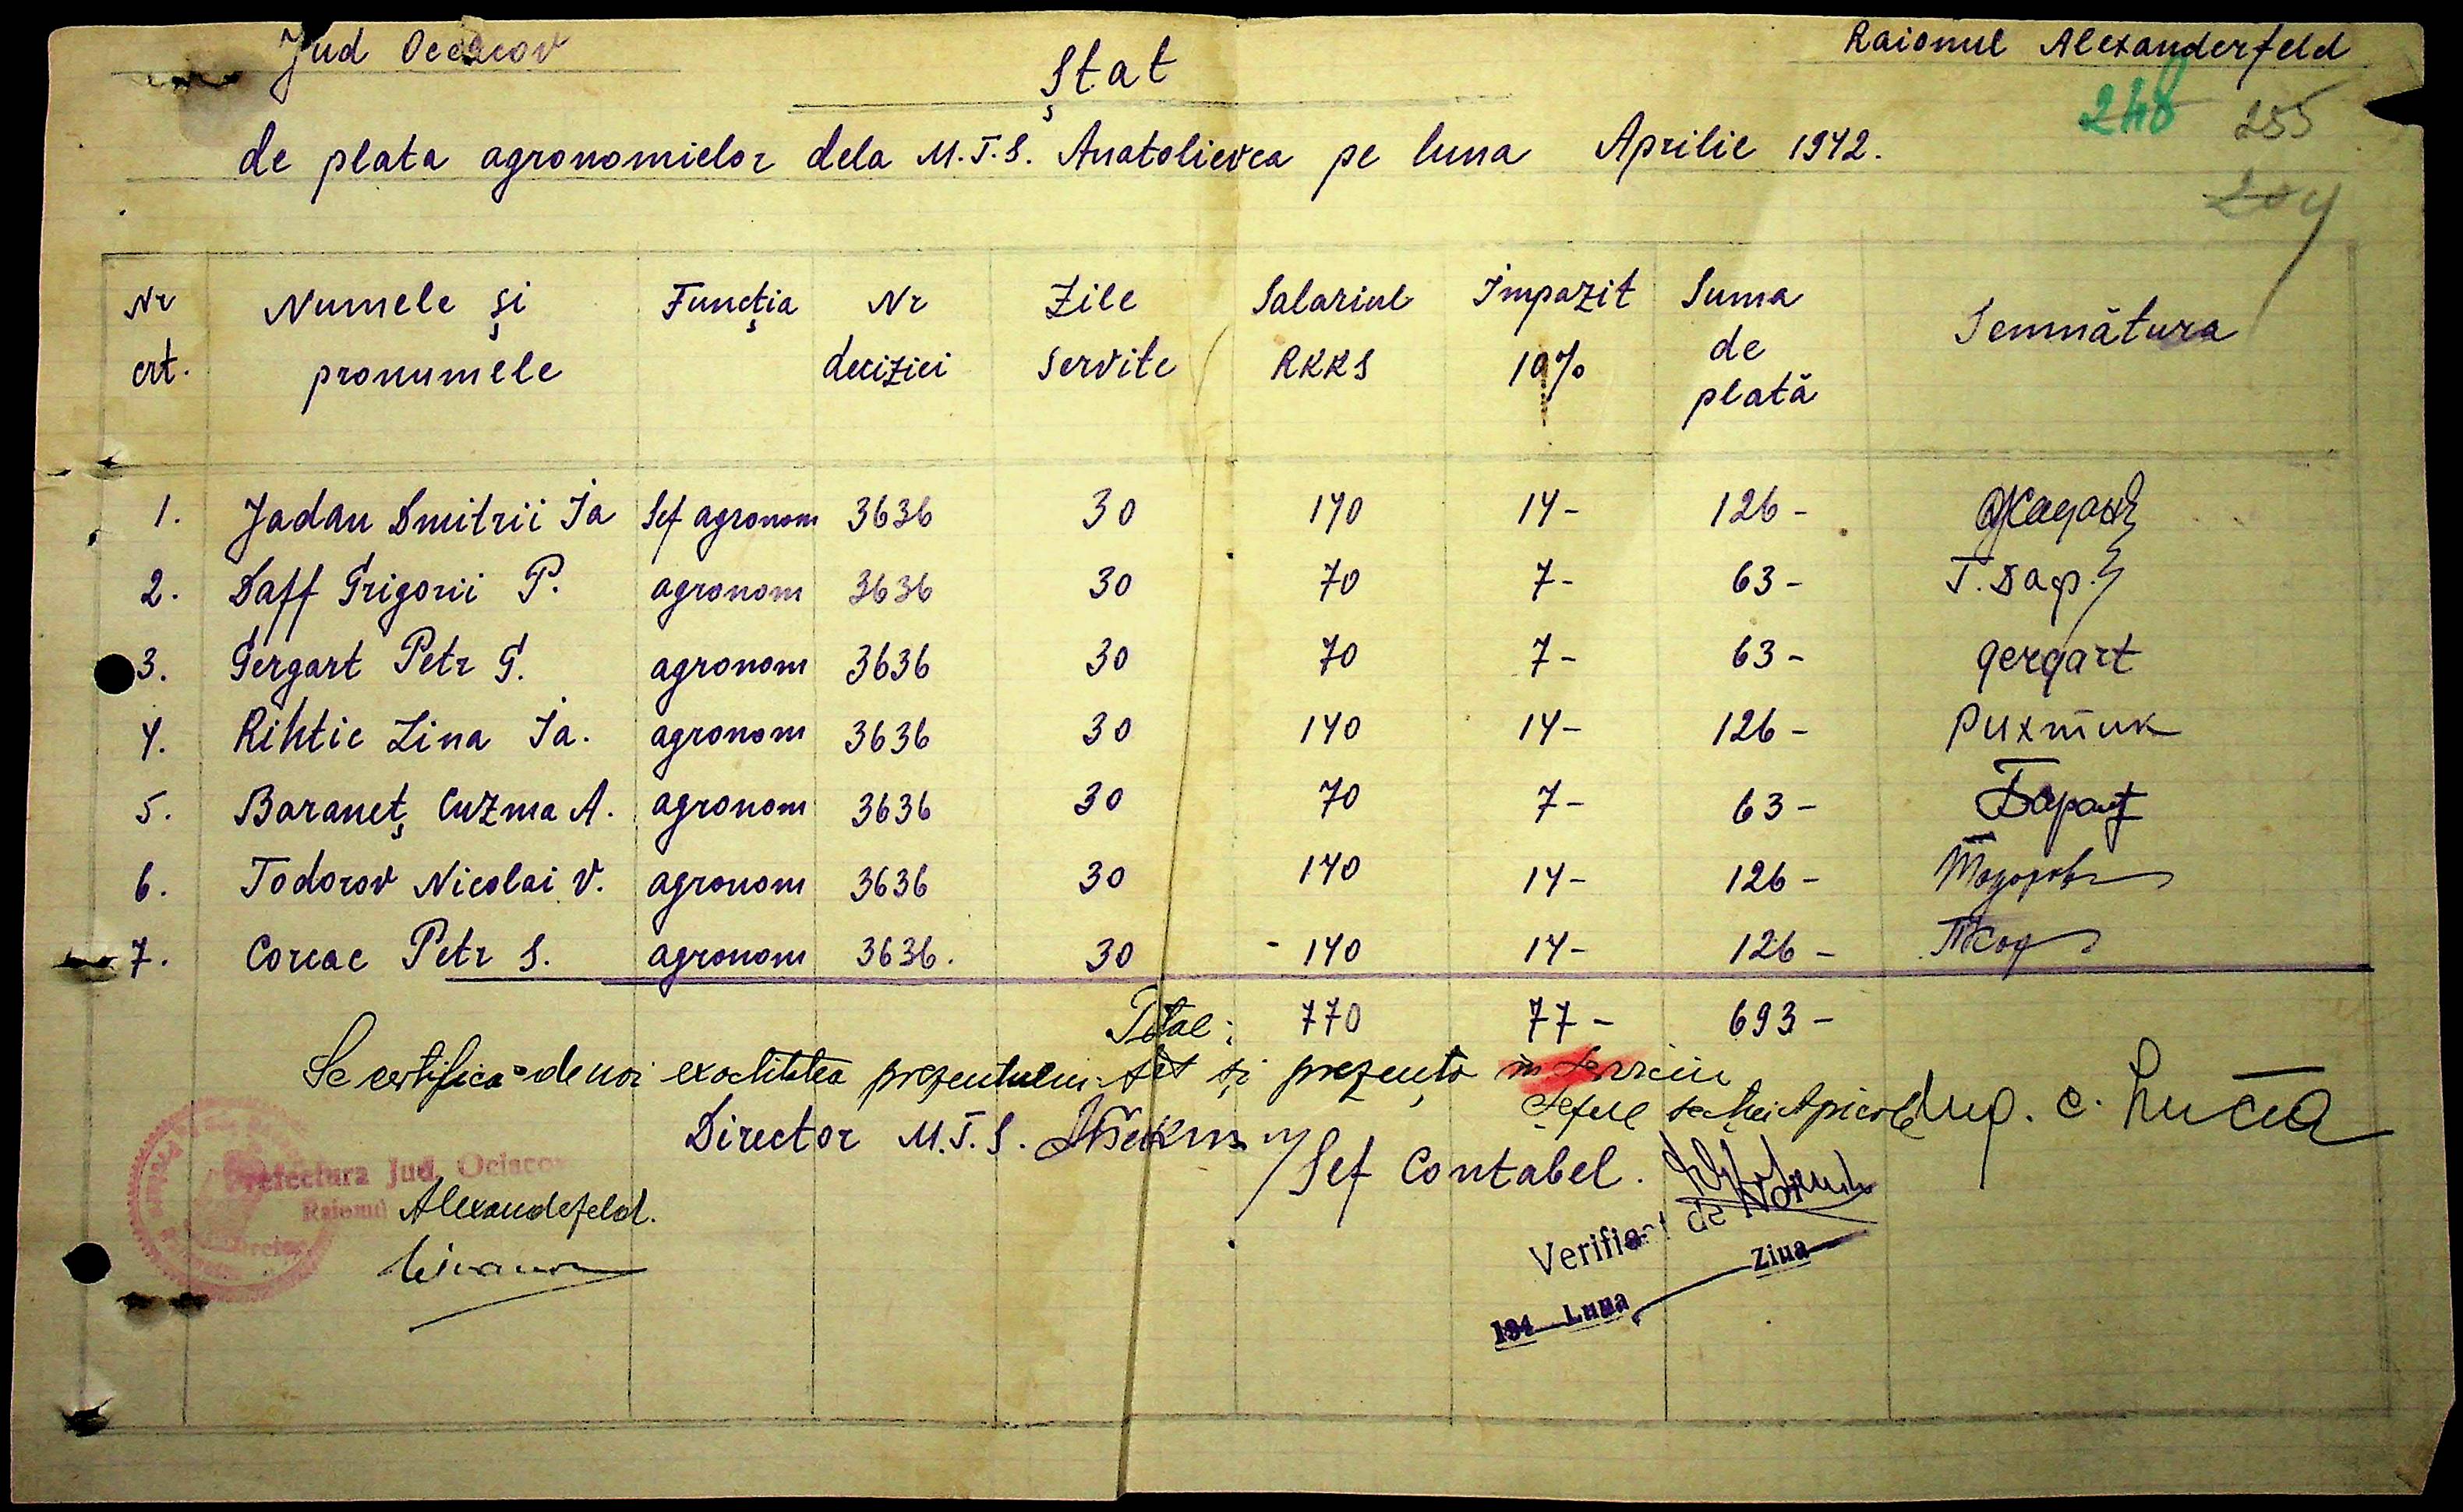 Jud Oceacov
Raionul Alexanderfeld
Ștat
248 255
204
de plata agronomielor dela M.T.S. Anatolievca pe luna Aprilie 1942.
Nr crt. Numele și pronumele Funcția Nr deciziei Zile servite Salariul RKKS Impozit 10% Suma de plată Semnătura
1. Jadan Dmitrii Ia Șef agronom 3636 30 140 14- 126- Жадан
2. Daff Grigorii P. agronom 3636 30 70 7- 63- Г. Даф.
3. Gergart Petr G. agronom 3636 30 70 7- 63- gergart
4. Rihtic Zina Ia. agronom 3636 30 140 14- 126- Рихтик
5. Baraneț Cuzma A. agronom 3636 30 70 7- 63-
6. Todorov Nicolai V. agronom 3636 30 140 14- 126- Тодоров
7. Corcac Petr S. agronom 3636. 30 -140 14- 126-
Total: 770 77- 693-
Se certifica de noi exactitatea prezentului stat și prezența în serviciu
Șeful secției Agricole Ing. C.
Director M.T.S.
Șef Contabel.
Prefectura Jud. Ociacov
Raionul Alexandefeld.
Verificat de
194 Luna Ziua